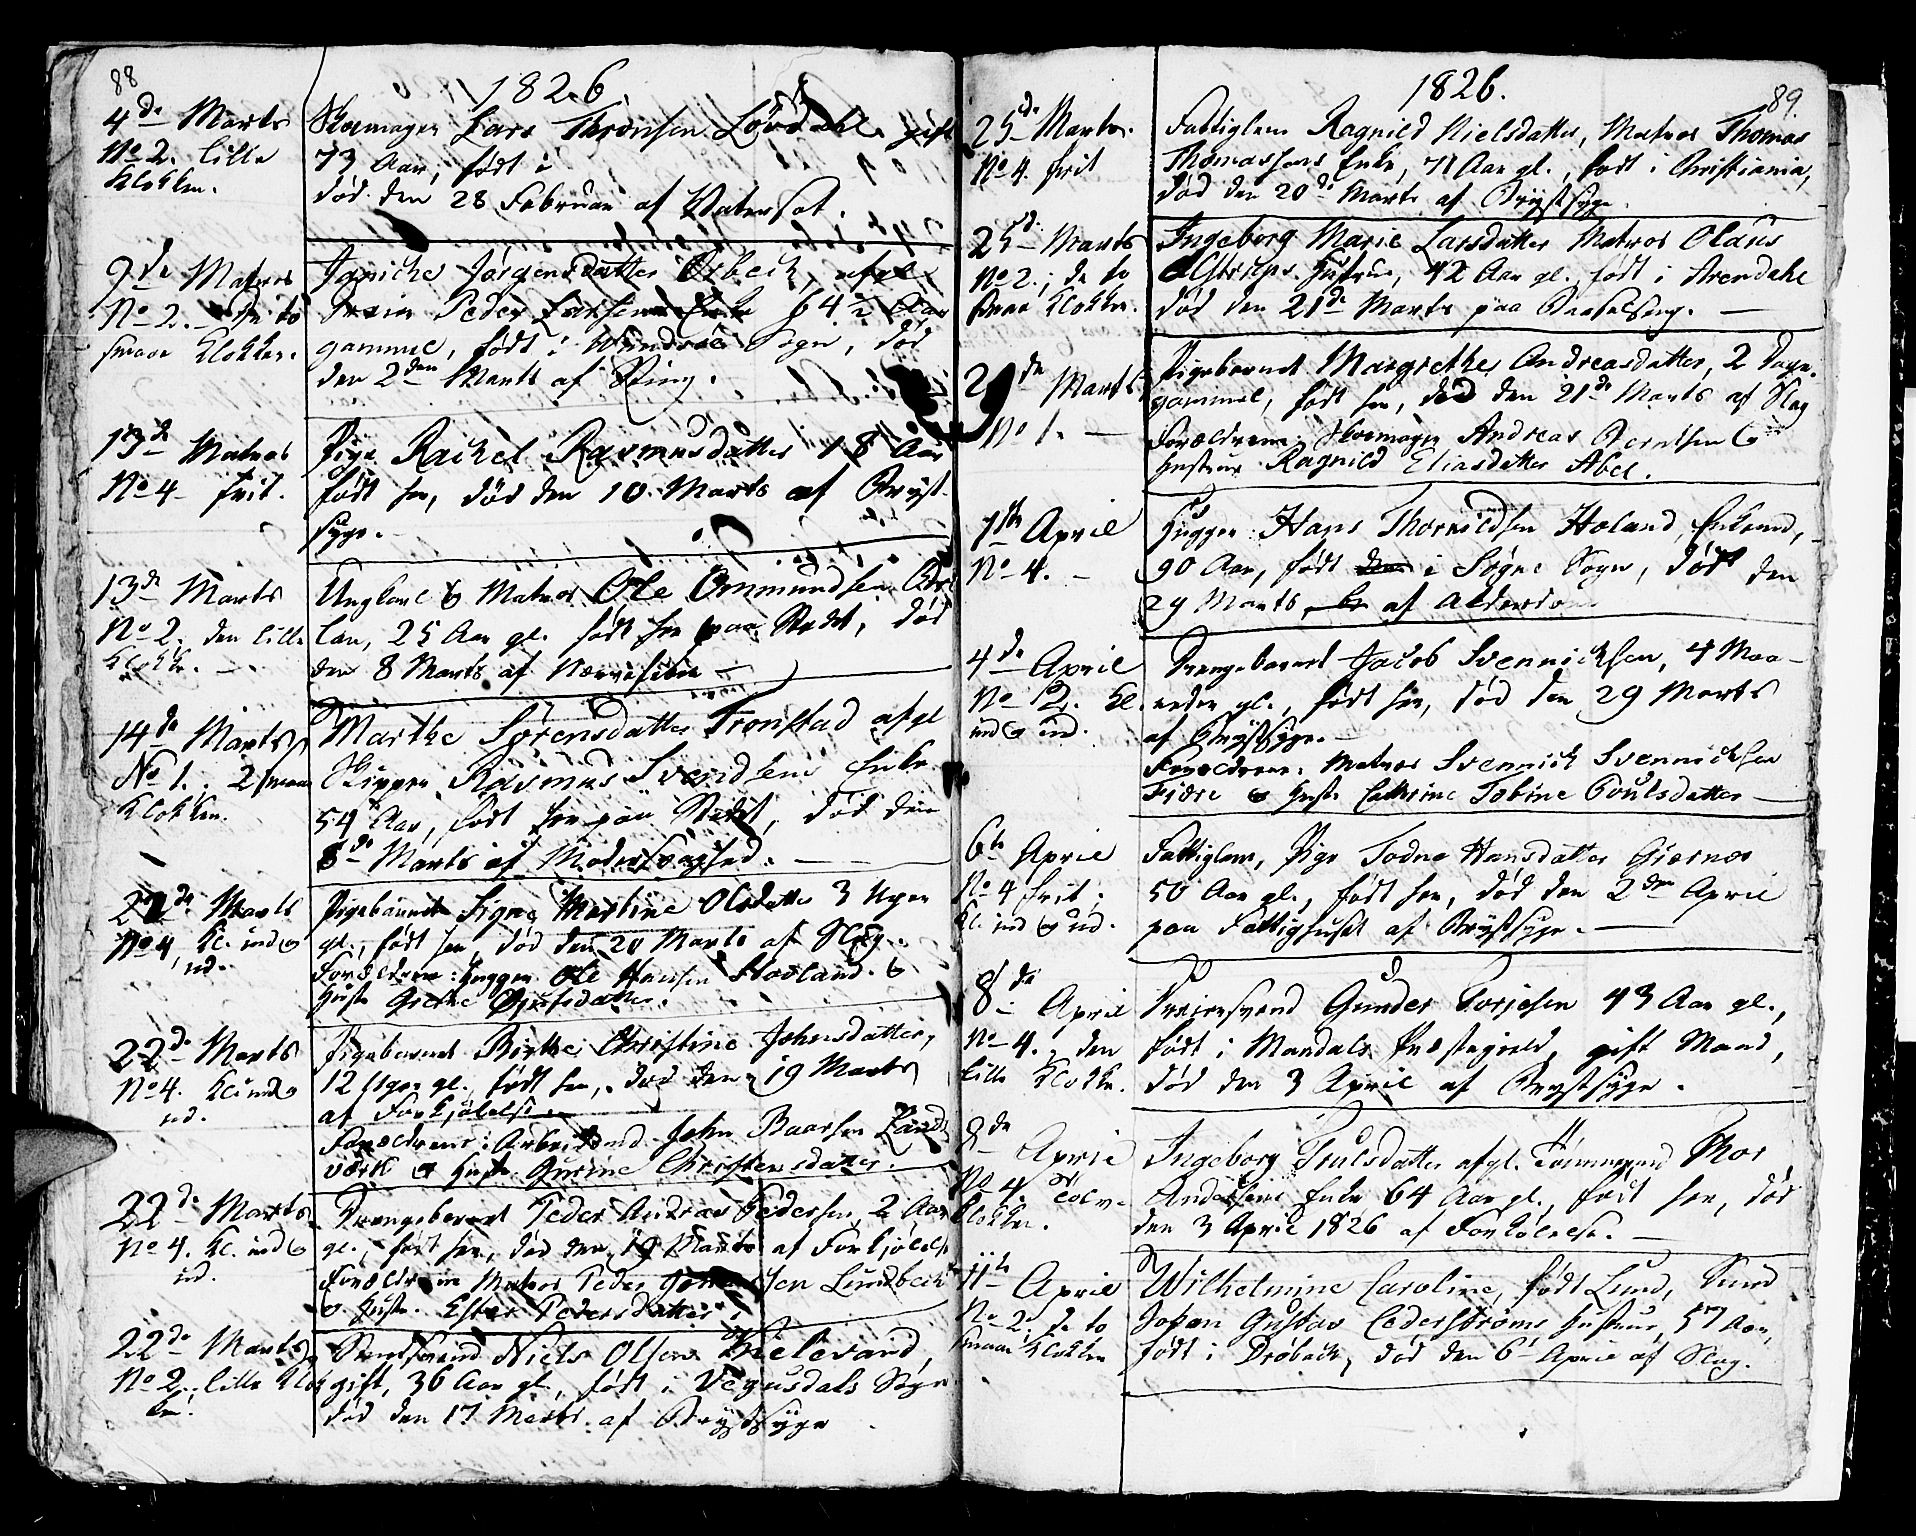 88
1826.
4de Marts
No 2. lille
Klokken.
Skomager Lars Thronsen Lövdahl gift
73 Aar, født i
død den 28 Februar af Vatersot.
9de Marts
No 2. de to
smaa Klokker.
Janiche Jørgensdatter Örbech, afgl.
Peder Larsens Enke 64 1/2 Aar
gammel, født i Sogn, død
den 2den Marts af Sting.
13de Marts
No 4 frit.
Pige Rachel Rasmusdatter 18 Aar
født her, død den 10 Marts af Bryst
syge.
13de Marts
No 2. den lille
Klokke.
Ungkarl & Matros Ole Ommundsen
lan, 25 Aar gl. født her paa Stedet, død
den 8 Marts af Nervefeber
14de Marts
No 1. 2 smaa
Klokker.
Marthe Sørensdatter Tronstad afgl
Skipper Rasmus Svendsens Enke
54 Aar, født her paa Stedet, død den
8de Marts af
22de Marts
No 4, Kl. ind &
ud.
Pigebarnet Signe Martine Olsdatter 3 Uger
gl., født her død den 20 Marts af Slag.
Forældrene: Hugger Ole Hansen Hovland &
Hustr Grethe
22de Marts
No 4. Kl ind &
ud.
Pigebarnet Birthe Christine Johnsdatter,
12 Uger gl., født her, død den 19 Marts
af Forkjølelse.
Forældrene: Arbeidsmd John Baarsen Land
værk & Hustr. Gurine Christensdatter.
22de Marts
No 4. Kl. ind &
ud.
Drengebarnet Peder Andreas Pedersen, 2 Aar
gl., født her, død den 19 Marts af Forkjølelse
Forældrene Matros Peder Lundbech
& Hustr. Ester Pedersdatter.
22de Marts
No 2. lille Klok
ke.
Niels Olsen Kielevand,
gift, 36 Aar gl., født i Vegusdals Sogn
død den 17 Marts af Brystsyge
1826.
89.
25de Marts.
No 4. frit
Fattiglem Ragnild Nielsdatter, Matros Thomas
Thomassens Enke, 71 Aar gl., født i Christiania,
død den 20de Marts af Brystsyge.
25de Marts
No 2, de to
smaa Klokker.
Ingeborg Marie Larsdatter Matros Olaus
Hustrue, 42 Aar gl. født i Arendahl
død den 21de Marts paa Barselseng.
de Marts
No 1.
Pigebarnet Margrethe Andreasdatter, 2 Dage
gammel, født her, død den 21de Marts af Slag
Forældrene, Skomager Andreas Berntsen &
Hustrue Ragnild Eliasdatter Abel.
1ste April
No 4.
Hugger Hans Thorvildsen Holand, Enkemd,
90 Aar, født i Søgne Sogn, dødt den
29 Marts af Alderdom
4de April
No 2. Kl.
ind & ud.
Drengebarnet Jacob Svennichsen, 4 Maa-
neder gl., født her, død den 29 Marts
af Brystsyge.
Forældrene: Matros Svennich Svennichsen
Fjære & Hustr Cathrine Tobine Poulsdatter
6te April
No 4 frit;
Kl. ind & ud.
Fattiglem, Pige Todne Hansdatter Giernes
50 Aar gl., født her, død den 2den April
paa Fattighuset af Brystsyge.
8de April
No 4. den
lille Klokke.
Dreiersvend Gunder Torjesen 43 Aar gl.,
født i Mandals Præstegield, gift Mand,
død den 3 April af Brystsyge.
8de April
No 4
Klokker.
Ingeborg Trulsdatter afgl. Tømmermand Thor
Andersens Enke 64 Aar gl., født her, død
den 3 April 1826 af Forkølelse.
11te April
No 2, de to
smaa Klokker
Wilhelmine Caroline, født Lund,
Johan Gustav Cederstrøms Hustrue, 57 Aar,
født i Drøbach, død den 6te April af Slag.